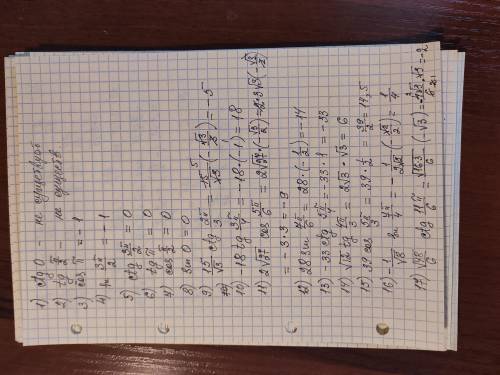 1) ctg 0 - не существует
2) tg π/2 не существ
3) cos π = -1
4) sin 3π/2 = -1
5) ctg 3π/2 = 0
6) tg π = 0
7) cos π/2 = 0
8) sin 0 = 0
9) 15/√3 ctg 2π/3 = 15/√3 (-√3/3) = -5
10) -18 tg 3π/4 = -18·(-1) = 18
11) 2√27 cos 5π/6 = 2√27·(-√3/2) = 2·3√3(-√3/2)
= -3·3 = -9
12) 28 sin 7π/6 = 28·(-1/2) = -14
13) -33 ctg 5π/4 = -33·1 = -33
14) √12 tg 4π/3 = 2√3·√3 = 6
15) 39 cos 5π/3 = 39·1/2 = 39/2 = 19,5
16) -1/√8 sin 7π/4 = -1/2√2 (-√2/2) = 1/4